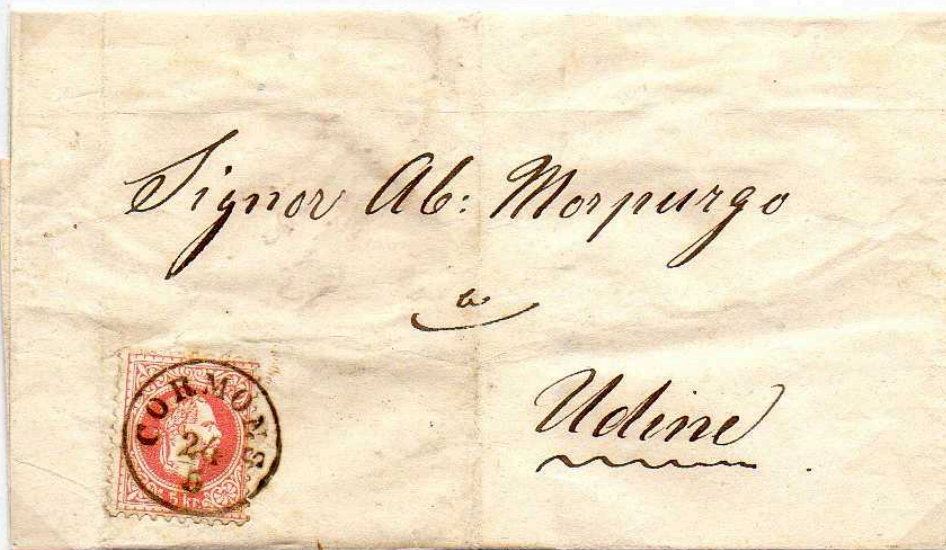 Signor Ab: Morpurgo
a
Udine
CORMONS
24
5 kr